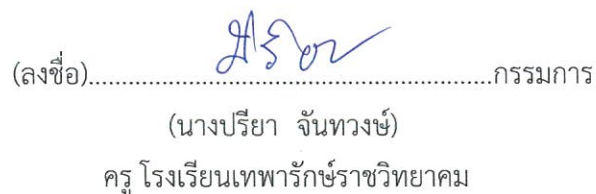 (ลงชื่อ)......................................................กรรมการ
(นางปรียา จันทวงษ์)
ครู โรงเรียนเทพารักษ์ราชวิทยาคม